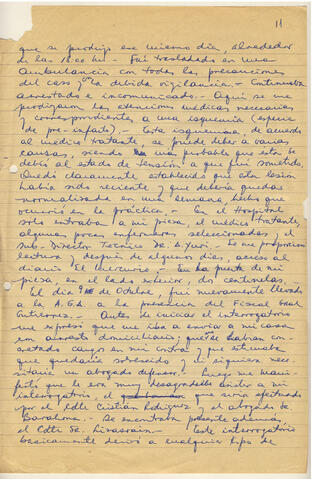 11
que se produjo ese mismo día, alrededor
de las 18.00 hrs.- Fui trasladado en una
ambulancia con todas las precauciones
del caso y la debida vigilancia.- Continuaba
arrestado e incomunicado.- Aquí se me
prodigaron las atenciones médicas necesarias
y correspondientes a una isquemia (especie
de pre-infarto).- Esta isquemia, de acuerdo
al médico tratante, se puede deber a varias
causas, siendo la más probable que ésta se
debió al estado de tensión a que fui sometido.
Quedó claramente establecido que esta lesión
había sido reciente y que debería quedar
normalizada en una semana, hecho que
ocurrió en la práctica.- En el Hospital
solo entraban a mi pieza, el médico tratante,
algunas pocas enfermeras seleccionadas, y el
sub-Director Técnico Dr. Se me proporcionó
lectura y después de algunos días, acceso al
diario El Mercurio.- En la puerta de mi
pieza, en el lado exterior, dos centinelas.
El día 9 de Octubre, fui nuevamente llevado
a la A.G.A. a la presencia del Fiscal Gral
Gutierrez.- Antes de iniciar el interrogatorio
me expresó que me iba a enviar a mi casa
en arresto domiciliario; que no habían en-
contrado cargos en mi contra y que estimaba
que quedaría sobreseido y ni siquiera nece-
sitaría un abogado defensor.- Luego me mani-
festó que le era muy desagradable asistir a mi
interrogatorio, el que sería efectuado
por el Cdte Cristián Rodriguez, y el abogado
Barahona.- Se encontraba presente además
el Cdte Sr. Larraín.- Este interrogatorio
básicamente derivó a cualquier tipo de